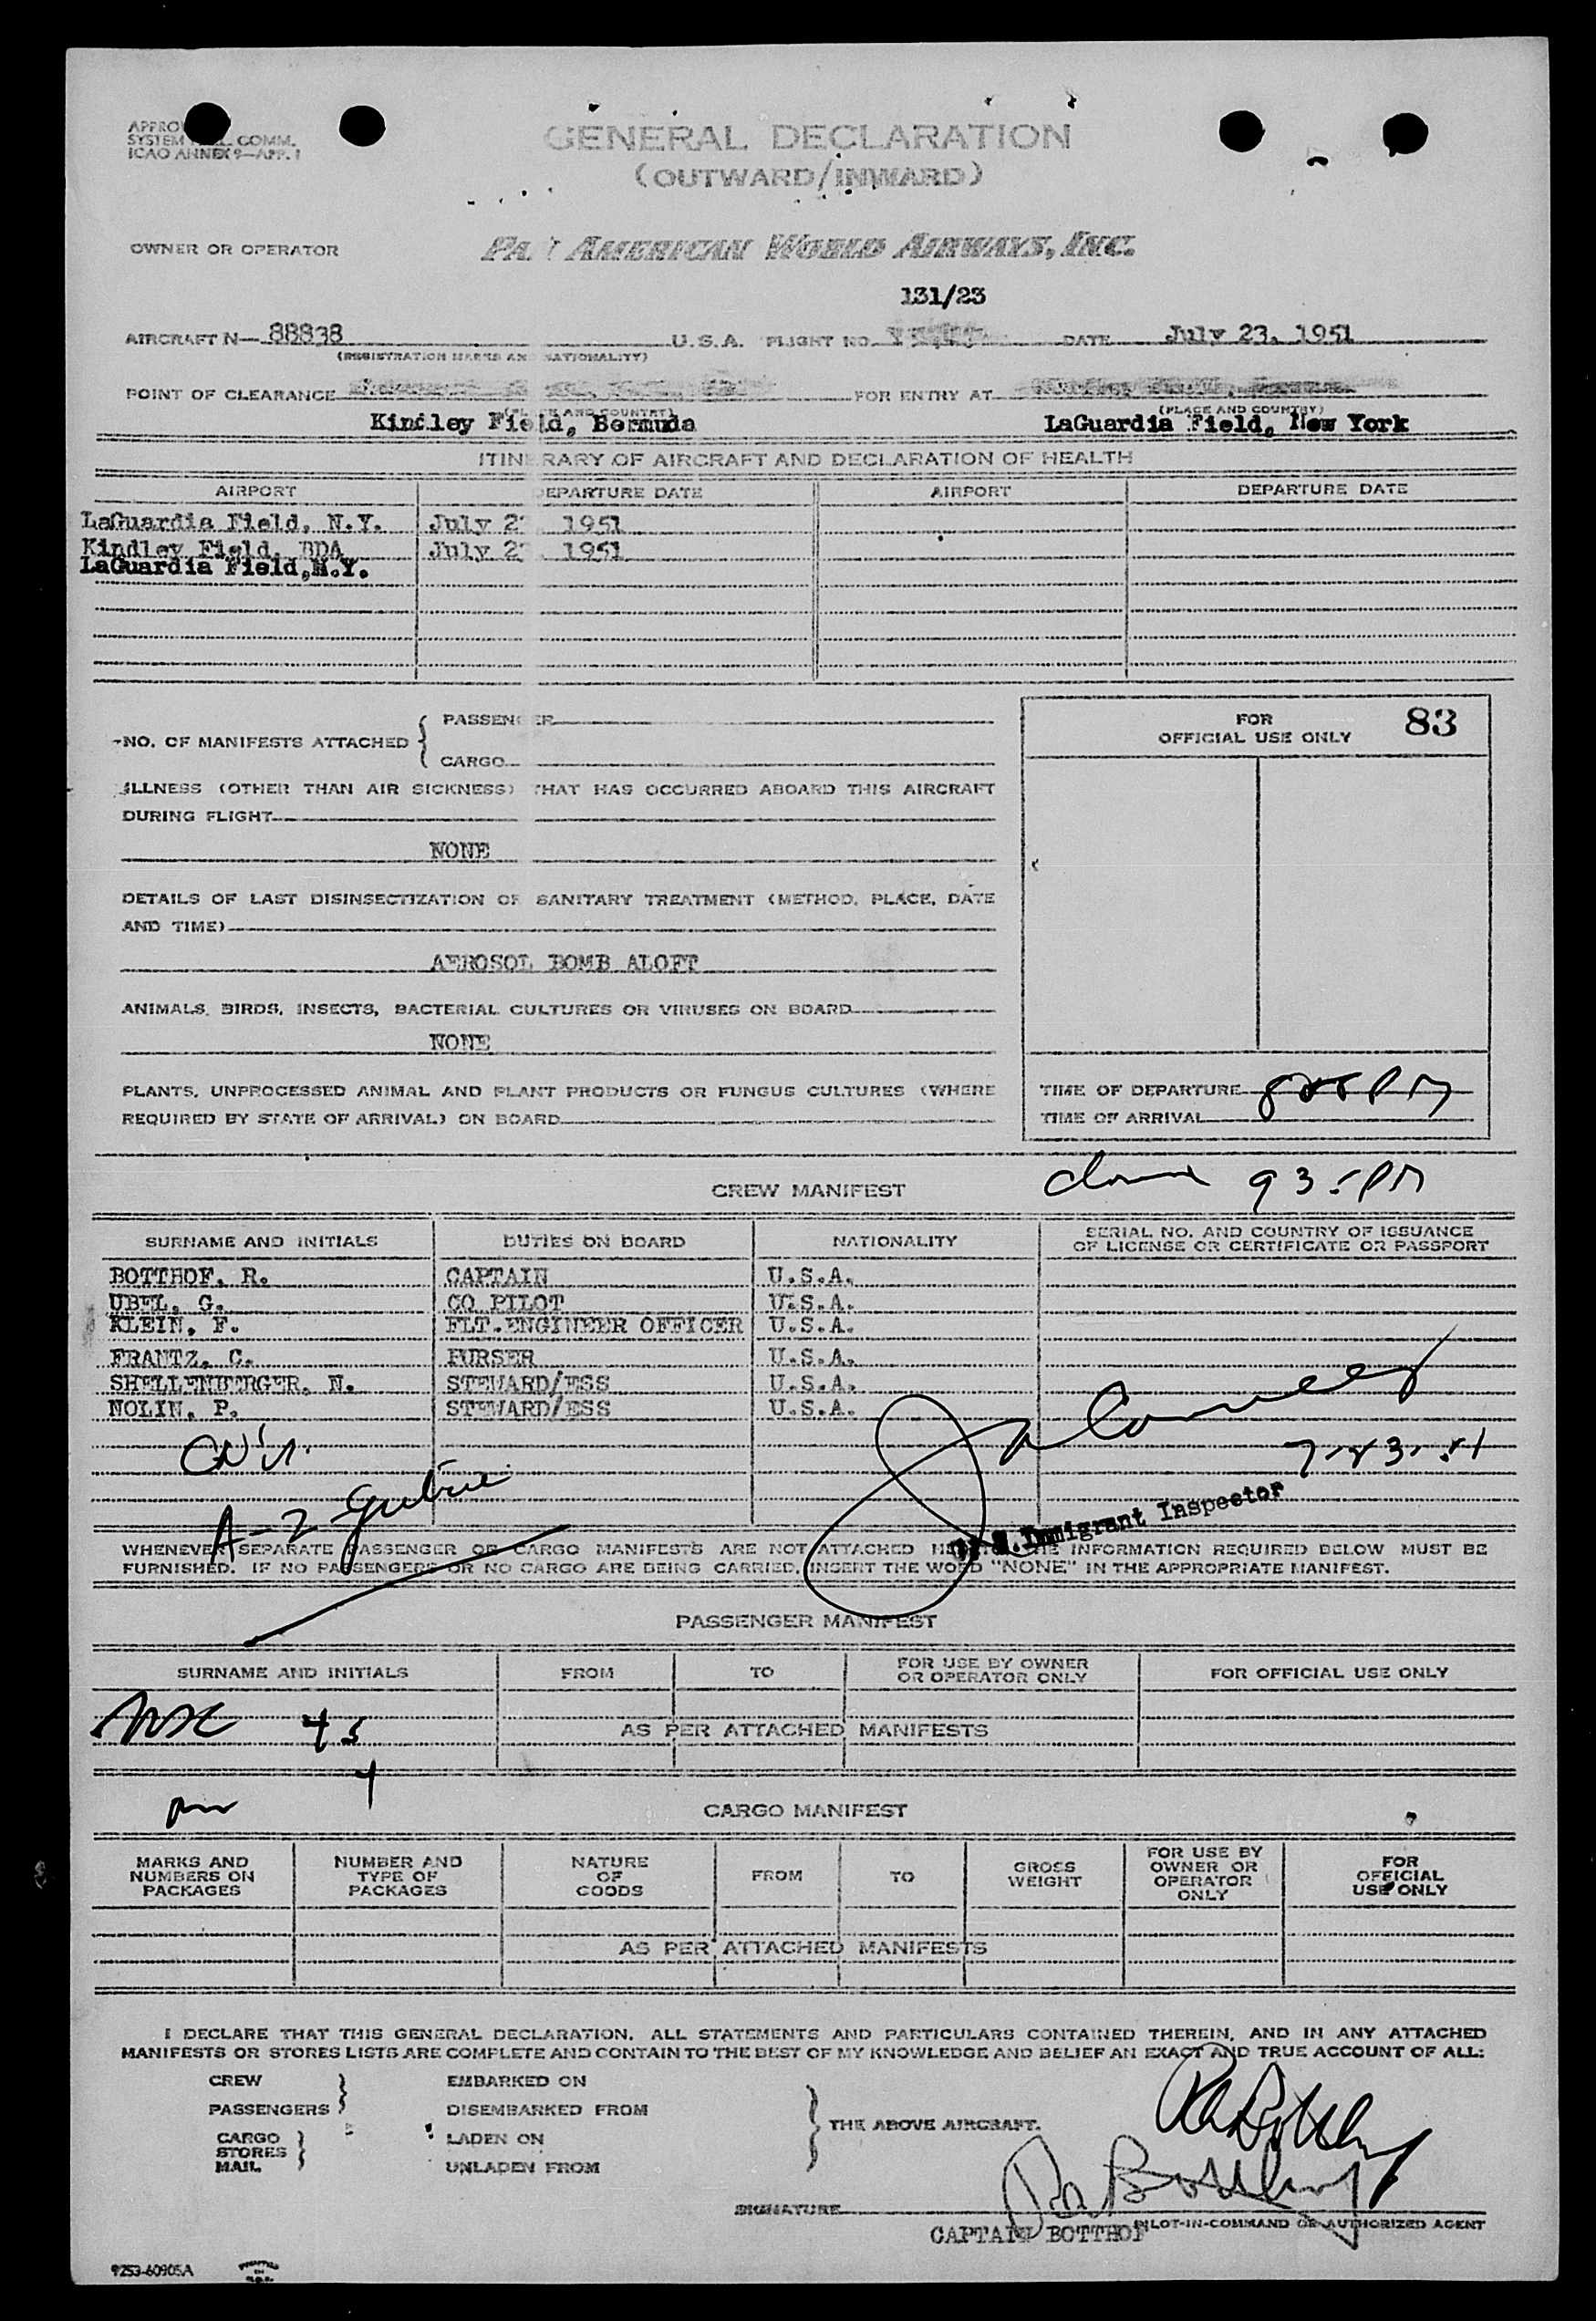 SYSTEM COMM.
ICAO ANNEX 9—APP. 1
GENERAL DECLARATION
(OUTWARD/INWARD)
OWNER OR OPERATOR
AMERICAN WORLD AIRWAYS, INC.
131/23
AIRCRAFT N— 88838 U.S.A. FLIGHT NO. DATE July 23, 1951
(REGISTRATION MARKS AND NATIONALITY)
POINT OF CLEARANCE FOR ENTRY AT
(PLACE AND COUNTRY) (PLACE AND COUNTRY)
Kindley Field, Bermuda LaGuardia Field, New York
ITINERARY OF AIRCRAFT AND DECLARATION OF HEALTH
AIRPORT DEPARTURE DATE AIRPORT DEPARTURE DATE
LaGuardia Field, N.Y. July 1951
Kindley Field, BDA July 1951
LaGuardia Field, N.Y.
NO. OF MANIFESTS ATTACHED { PASSENGER
CARGO
FOR OFFICIAL USE ONLY 83
ILLNESS (OTHER THAN AIR SICKNESS) THAT HAS OCCURRED ABOARD THIS AIRCRAFT
DURING FLIGHT
NONE
DETAILS OF LAST DISINSECTIZATION OR SANITARY TREATMENT (METHOD, PLACE, DATE
AND TIME)
AEROSOL BOMB ALOFT
ANIMALS, BIRDS, INSECTS, BACTERIAL CULTURES OR VIRUSES ON BOARD
NONE
PLANTS, UNPROCESSED ANIMAL AND PLANT PRODUCTS OR FUNGUS CULTURES (WHERE
REQUIRED BY STATE OF ARRIVAL) ON BOARD
TIME OF DEPARTURE
TIME OF ARRIVAL
CREW MANIFEST
SURNAME AND INITIALS DUTIES ON BOARD NATIONALITY SERIAL NO. AND COUNTRY OF ISSUANCE
OF LICENSE OR CERTIFICATE OR PASSPORT
BOTTHOF, R. CAPTAIN U.S.A.
UBEL, G. CO PILOT U.S.A.
KLEIN, F. FLT.ENGINEER OFFICER U.S.A.
FRANTZ, C. PURSER U.S.A.
SHELLENBERGER, N. STEWARD/ESS U.S.A.
NOLIN, P. STEWARD/ESS U.S.A.
7-23-51
A-2
Immigrant Inspector
WHENEVER SEPARATE PASSENGER OR CARGO MANIFESTS ARE NOT ATTACHED THE INFORMATION REQUIRED BELOW MUST BE
FURNISHED. IF NO PASSENGERS OR NO CARGO ARE BEING CARRIED, INSERT THE WORD "NONE" IN THE APPROPRIATE MANIFEST.
PASSENGER MANIFEST
SURNAME AND INITIALS FROM TO FOR USE BY OWNER
OR OPERATOR ONLY FOR OFFICIAL USE ONLY
AS PER ATTACHED MANIFESTS
CARGO MANIFEST
MARKS AND NUMBERS ON PACKAGES NUMBER AND TYPE OF PACKAGES NATURE OF GOODS FROM TO GROSS WEIGHT FOR USE BY OWNER OR OPERATOR ONLY FOR OFFICIAL USE ONLY
AS PER ATTACHED MANIFESTS
I DECLARE THAT THIS GENERAL DECLARATION, ALL STATEMENTS AND PARTICULARS CONTAINED THEREIN, AND IN ANY ATTACHED
MANIFESTS OR STORES LISTS ARE COMPLETE AND CONTAIN TO THE BEST OF MY KNOWLEDGE AND BELIEF AN EXACT AND TRUE ACCOUNT OF ALL:
CREW EMBARKED ON
PASSENGERS } DISEMBARKED FROM
THE ABOVE AIRCRAFT.
CARGO LADEN ON
STORES }
MAIL UNLADEN FROM
SIGNATURE
PILOT-IN-COMMAND OR AUTHORIZED AGENT
CAPTAIN BOTTHOF
9253-60905A